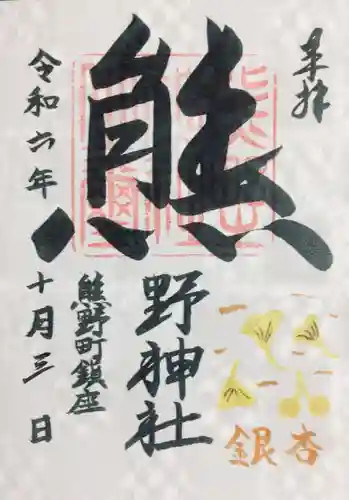 奉拝
熊
野神社
熊野町鎮座
令和六年
十月三日
銀杏